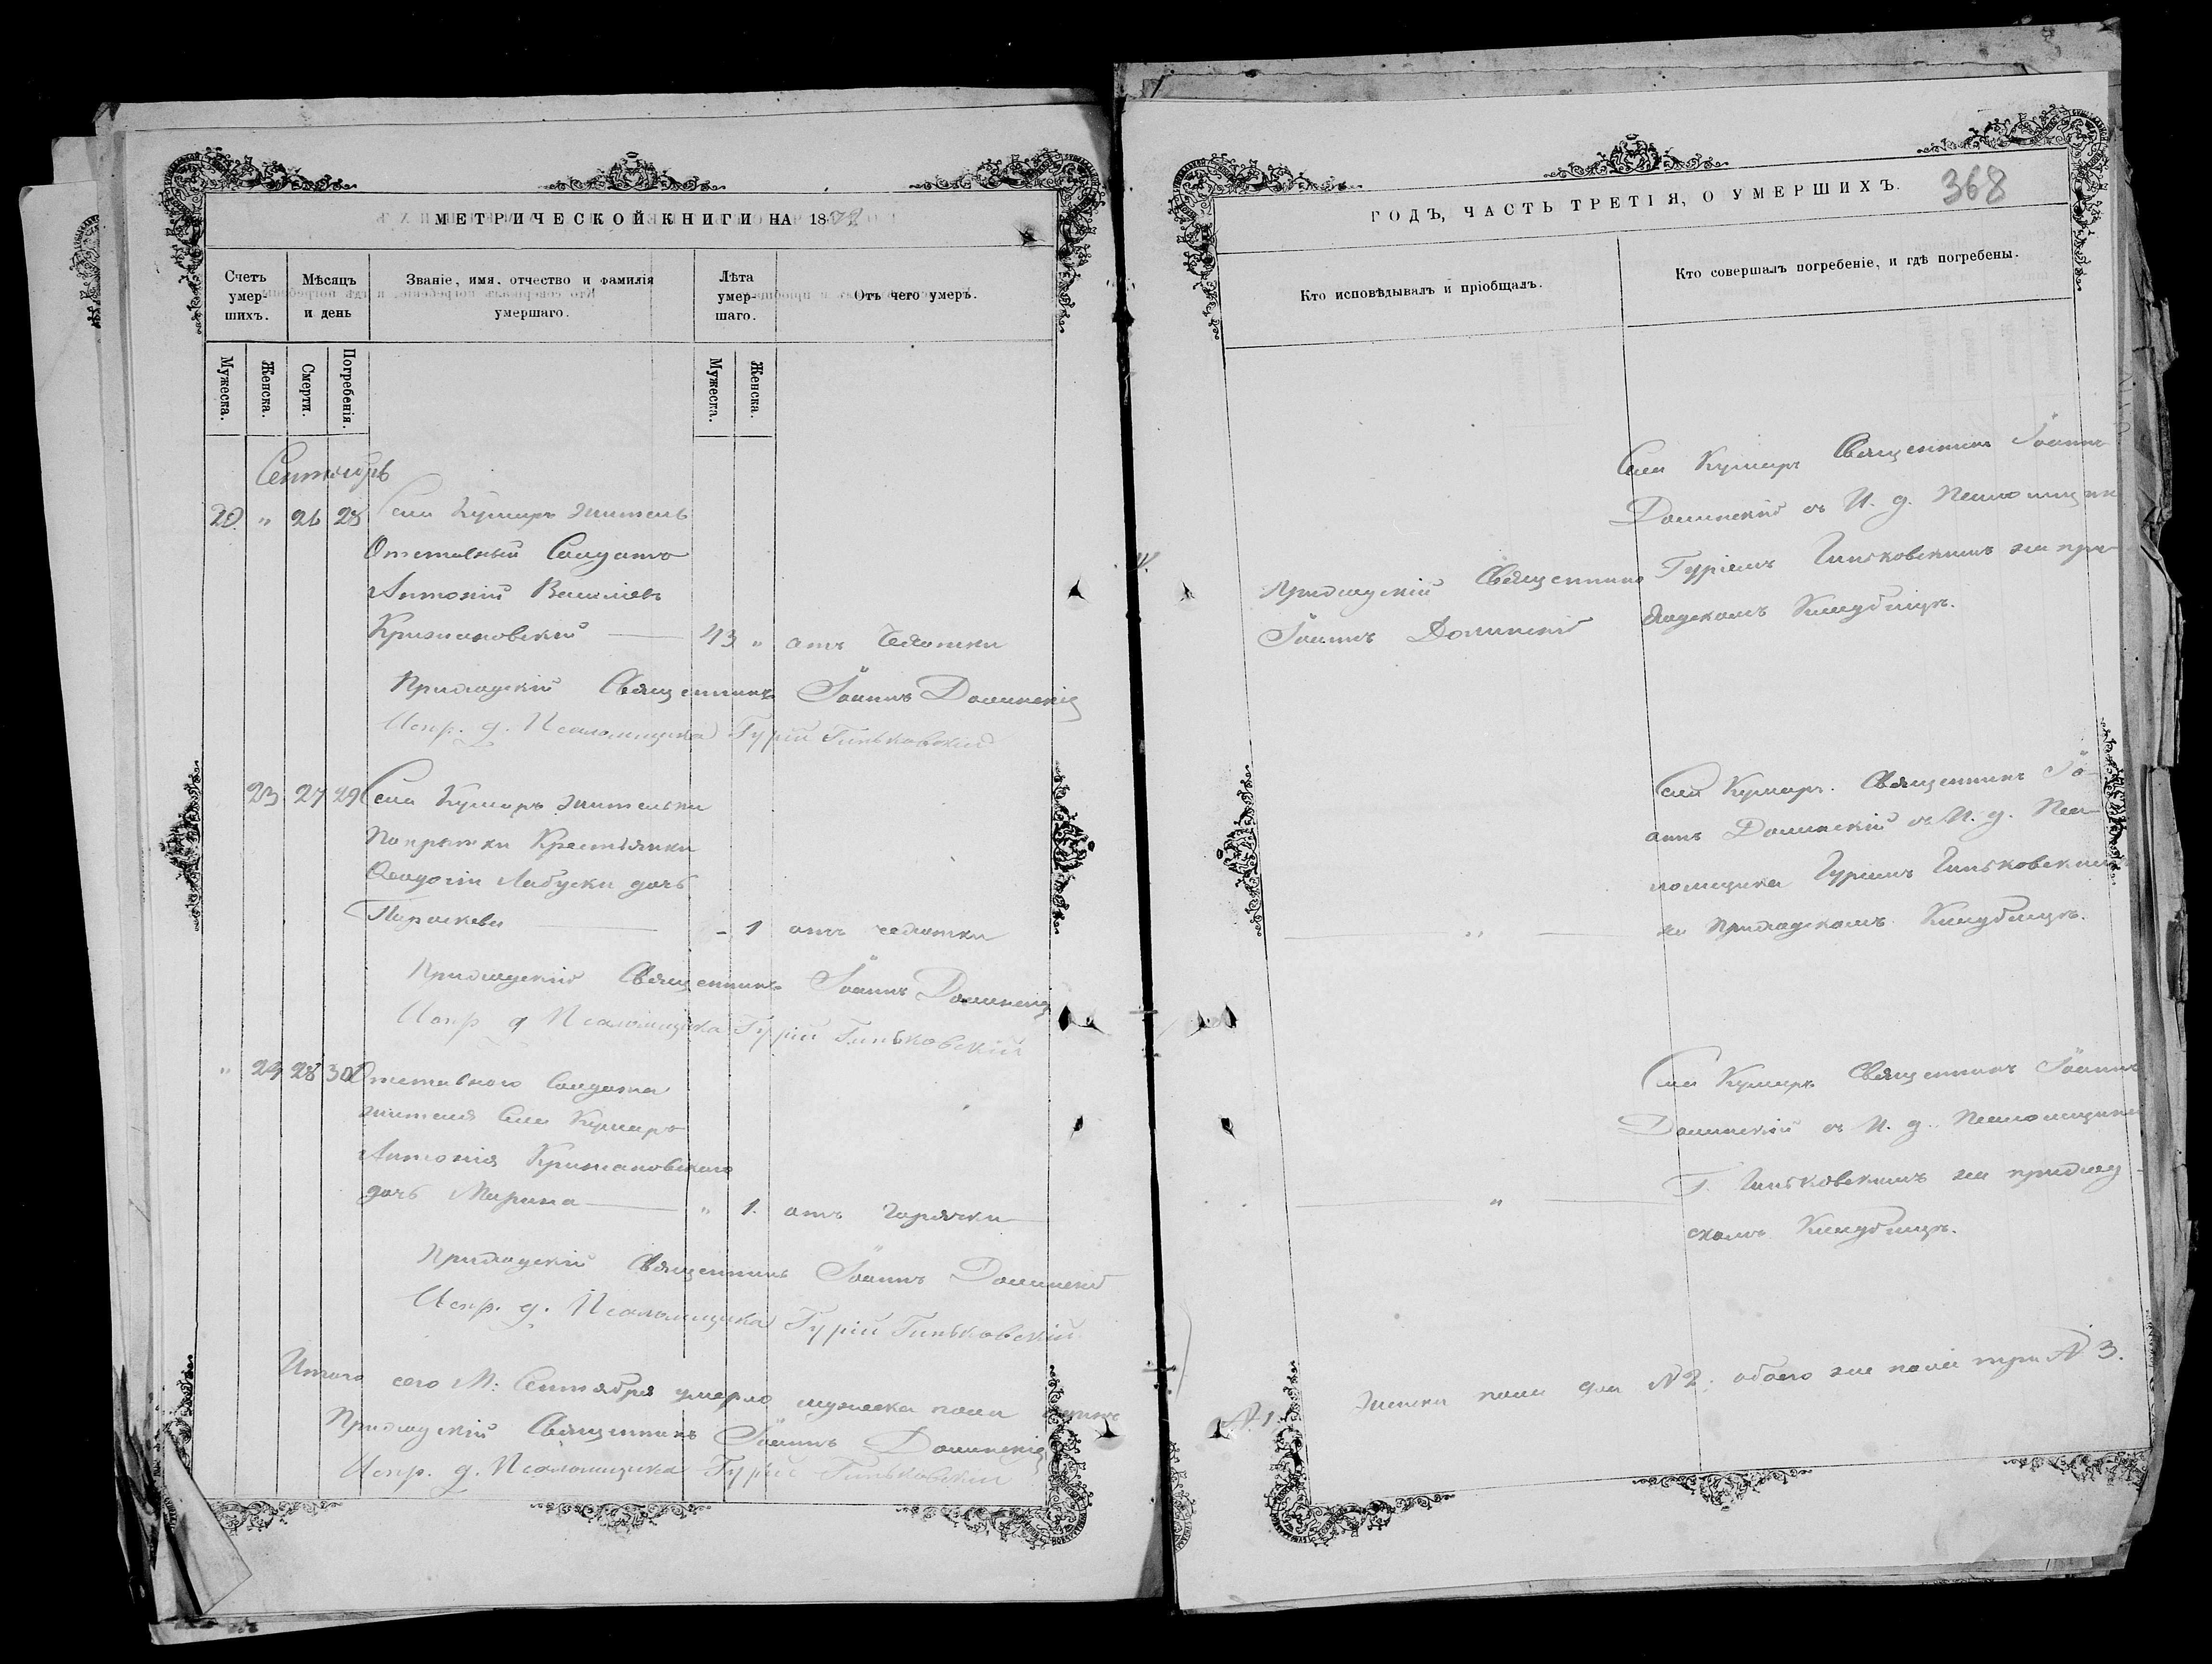 МЕТРИЧЕСКОЙ КНИГИ НА 18
Счетъ умер-шихъ.
Мѣсяцъ и день
Званіе, имя, отчество и фамилія умершаго.
Лѣта умер-шаго.
Отъ чего умеръ.
Мужеска.
Женска.
Смерти.
Погребенія.
Мужеска.
Женска.
Сентябрь
20. " 26 28 Села Кушмирк жителъ
Отставный Солдатъ
Антоній Василіевъ
Крижановскій — 43 " отъ Чехотки
Приходскій Священникъ Іоаннъ Долинскій
Испр. д. Псаломщика Гурій Гиньковскій
23 27 29 Села
Крестьянки
дочь
Параскева — - 1 отъ чехотки
Приходскій Священникъ Іоаннъ Долинскій
Испр. д. Псаломщика Гурій Гиньковскій
" 24 28 30 Отставного Солдата
жителя Села
Антонія Крижановскаго
дочь Марина — " 1. отъ горячки
Приходскій Священникъ Іоаннъ Долинскій
Испр. д. Псаломщика Гурій Гиньковскій
Итого сего М: Сентября умерло мужеска пола
Приходскій Священникъ Іоаннъ Долинскій
Испр. д. Псаломщика Гурій Гиньковскій
368
ГОДЪ, ЧАСТЬ ТРЕТІЯ, О УМЕРШИХЪ.
Кто исповѣдывалъ и пріобщалъ.
Кто совершалъ погребеніе, и гдѣ погребены.
Приходскій Священникъ
Іоаннъ Долинскій
Села Священникъ Іоаннъ
Долинскій съ И. д. Псаломщика
Гуріемъ Гиньковскимъ на при-
ходскомъ Кладбищѣ.
"
Села Священникъ Іо-
аннъ Долинскій съ И. д. Пса-
ломщика Гуріемъ Гиньковскимъ
на приходскомъ Кладбищѣ.
"
Села Священникъ Іоаннъ
Долинскій съ И. д. Псаломщика
Г. Гиньковскимъ на приход-
скомъ Кладбищѣ.
№ 1. Женска пола два № 2. обоего же пола три № 3.